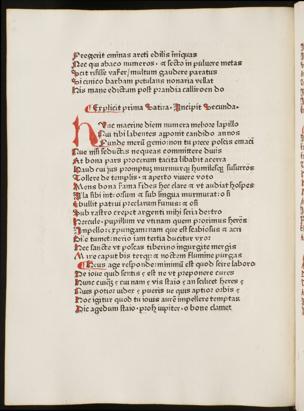 Fregerit eminas areti edilis iniquas
Nec qui abaco numeros · & secto in puluere metas
Scit risisse vafer/ multum gaudere paratus
Si cinico barbam petulans nonaria vellat
His mane edictum post prandia calliroen do
Explicit prima Satira · Incipit Secunda ·
Hunc macrine diem numera meliore lapillo
Qui tibi labentes apponit candido annos
Funde merũ genio: non tu prece poscis emaci
Que nisi seductis nequeas committere diuis
At bona pars procerum tacita libabit acerra
Haud cui uis promptũ; murmurq; humilesq; susurros
Tollere de templis · & aperto viuere voto
Mens bona fama fides hec clare & vt audiat hospes
Illa sibi introrsum & sub lingua murmurat: o si
Ebullit patrui preclarum funus: & o si
Sub rastro crepet argenti mihi seria dextro
Hercule · pupillum ve vtinam quem proximus heres
Impello: expungam: nam que est scabiosus & acri
Bile tumet: nerio iam tertia ducitur vxor
Hec sancte vt poscas tiberino in gurgite mergis
Mane caput bis terq; & noctem flumine purgas
Heus age responde: minimũ est quod scire laboro
De ioue quid sentis · est ne vt preponere cures
Hunc cuiq; · cui nam · vis staio · an scilicet heres ·
Quis potior iudex · pueris ve quis aptior orbis ·
Hoc igitur quo tu iouis aurẽ impellere temptas
Dic agedum staio · proh iupiter · o bone clamet